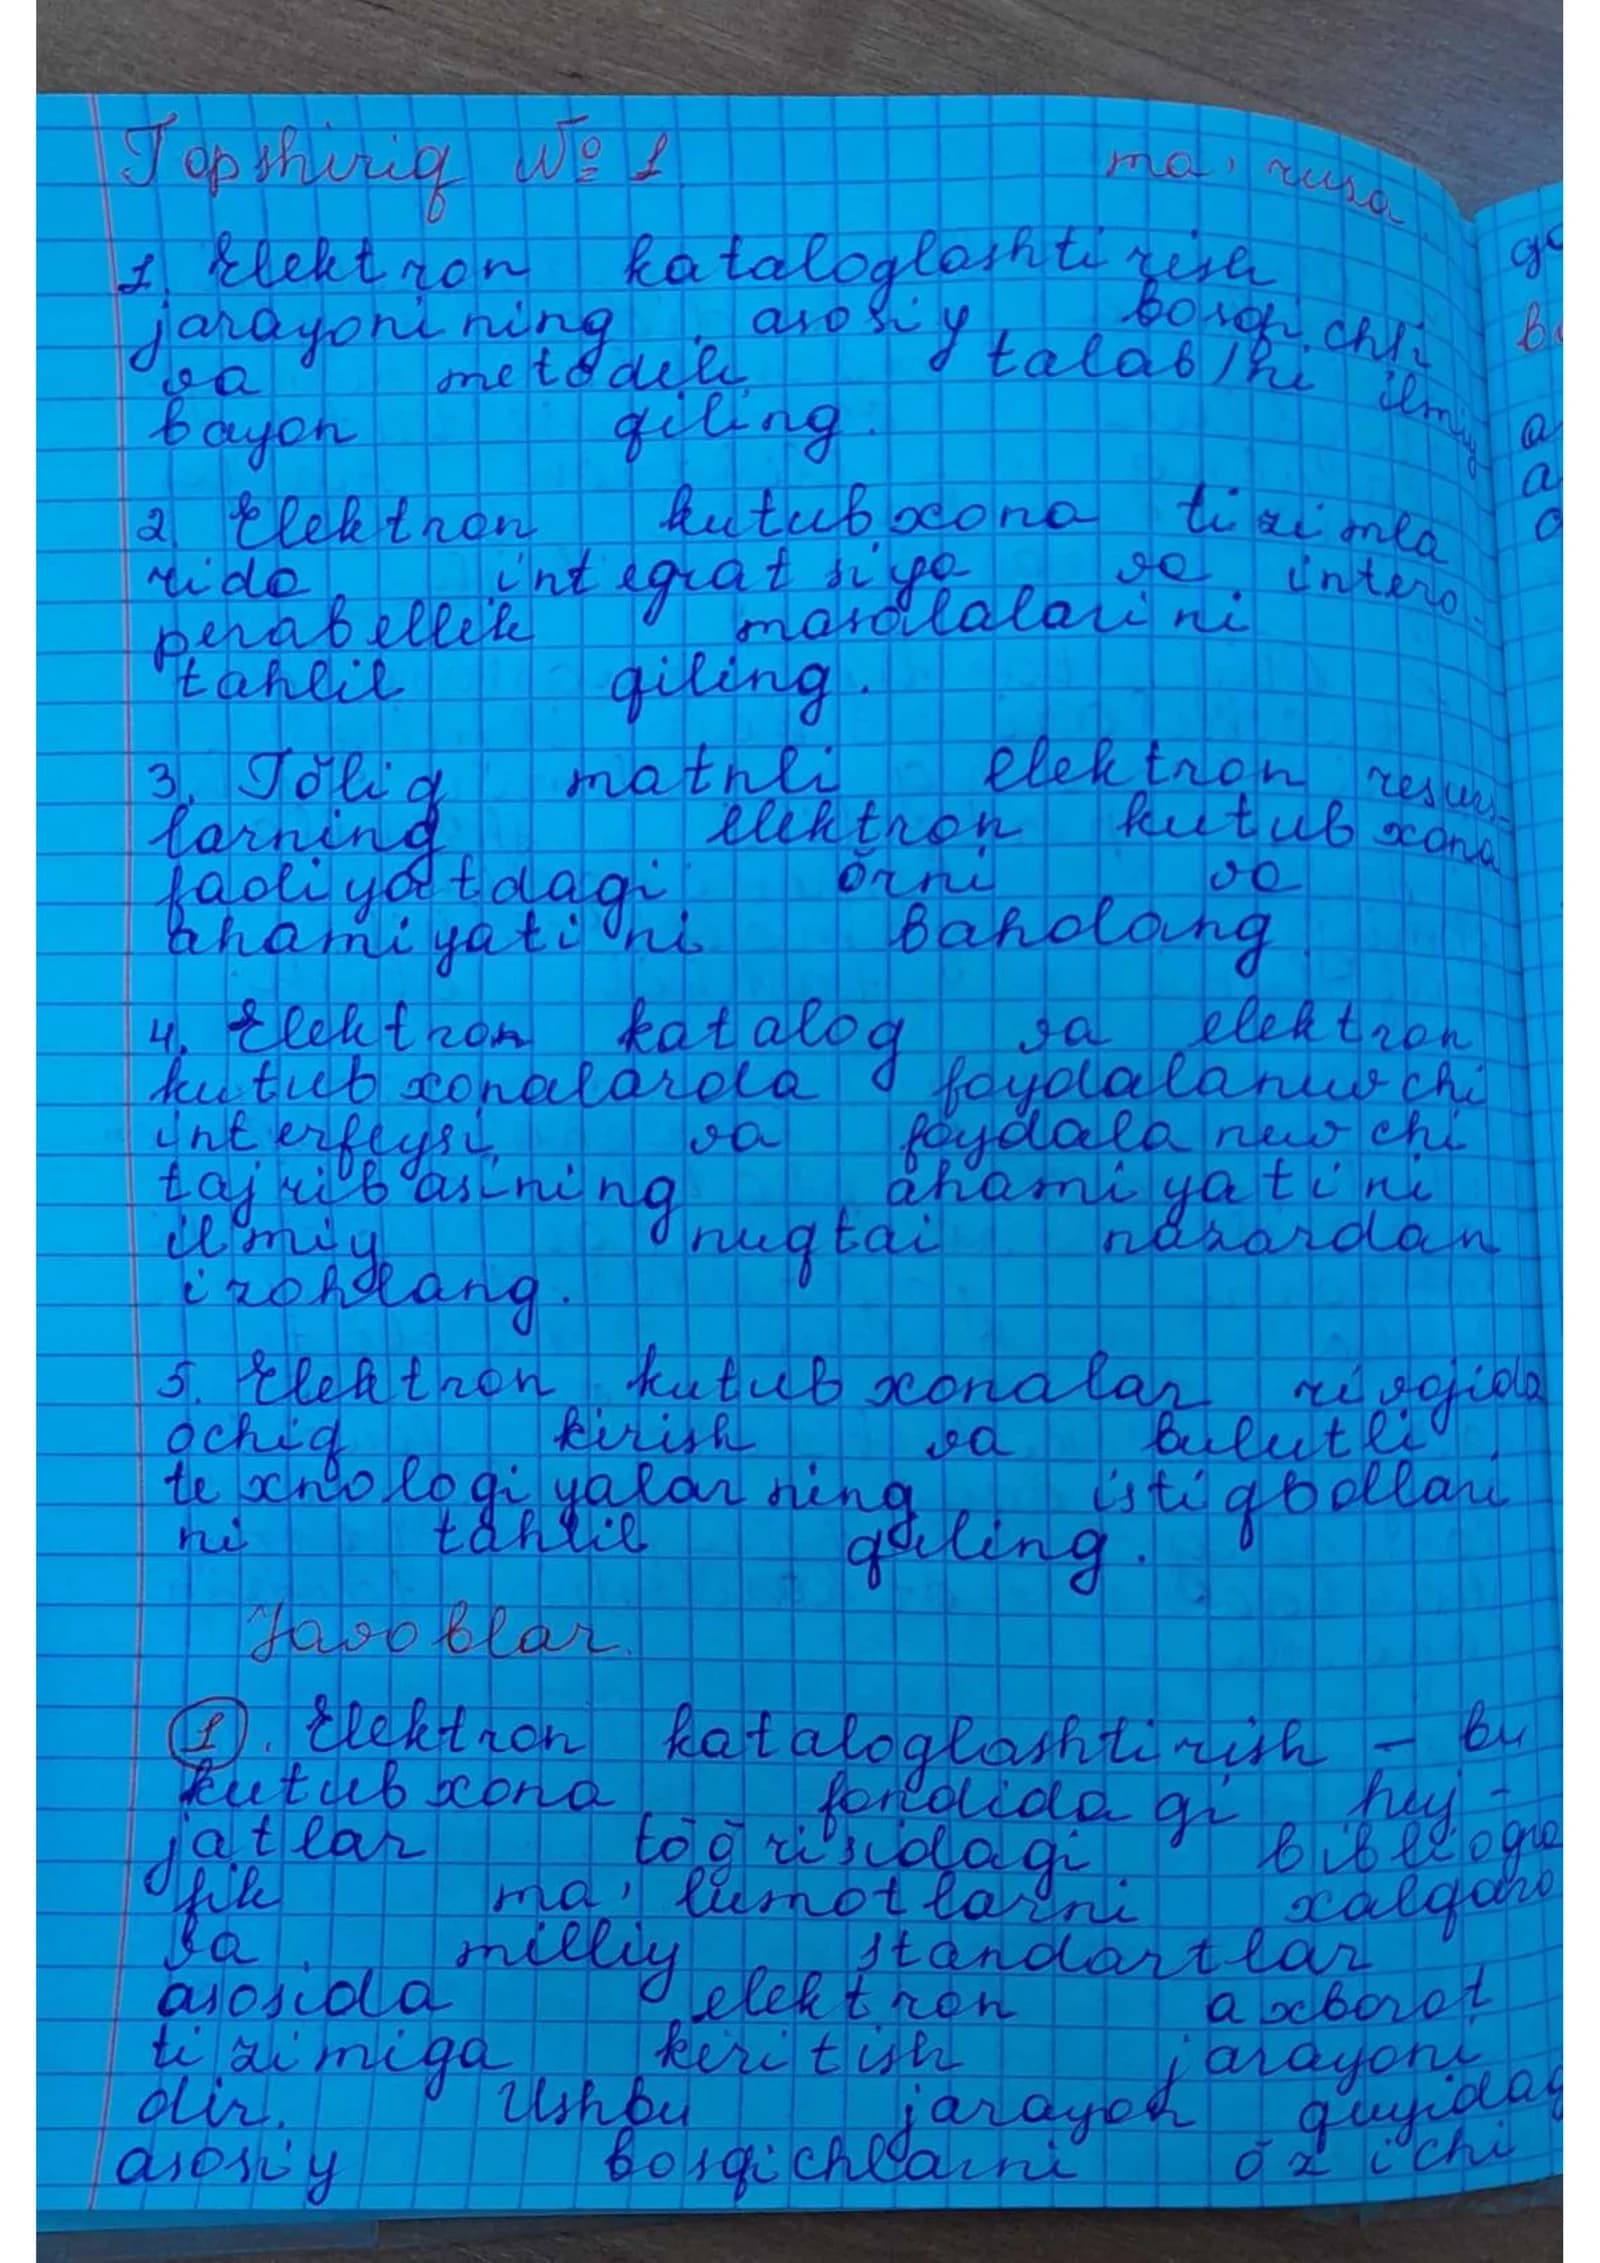 Topshiriq № 1 ma'ruza
1. Elektron kataloglashtirish
jarayonining asosiy bosqichli
va metodik talab/ni ilmiy
bayon qiling.
2. Elektron kutubxona tizimla
rida integratsiya va intero-
perabellik masalalarini
tahlil qiling.
3. Tŏliq matnli elektron resurs-
larning elektron kutubxona
faoliyatdagi ŏrni va
ahamiyatini baholang.
4. Elektron katalog va elektron
kutubxonalarda foydalanuvchi
interfeysi va foydalanuvchi
tajribasining ahamiyatini
ilmiy nuqtai nazardan
izohlang.
5. Elektron kutubxonalar rivojida
ochiq kirish va bulutli
texnologiyalarning istiqbollari
ni tahlil qiling.
Javoblar.
1. Elektron kataloglashtirish - bu
kutubxona fondidagi huj-
jatlar tŏğrisidagi bibliogra
fik ma'lumotlarni xalqaro
va milliy standartlar
asosida elektron axborot
tizimiga kiritish jarayoni
dir. Ushbu jarayon quyidag
asosiy bosqichlarni ŏz ichi